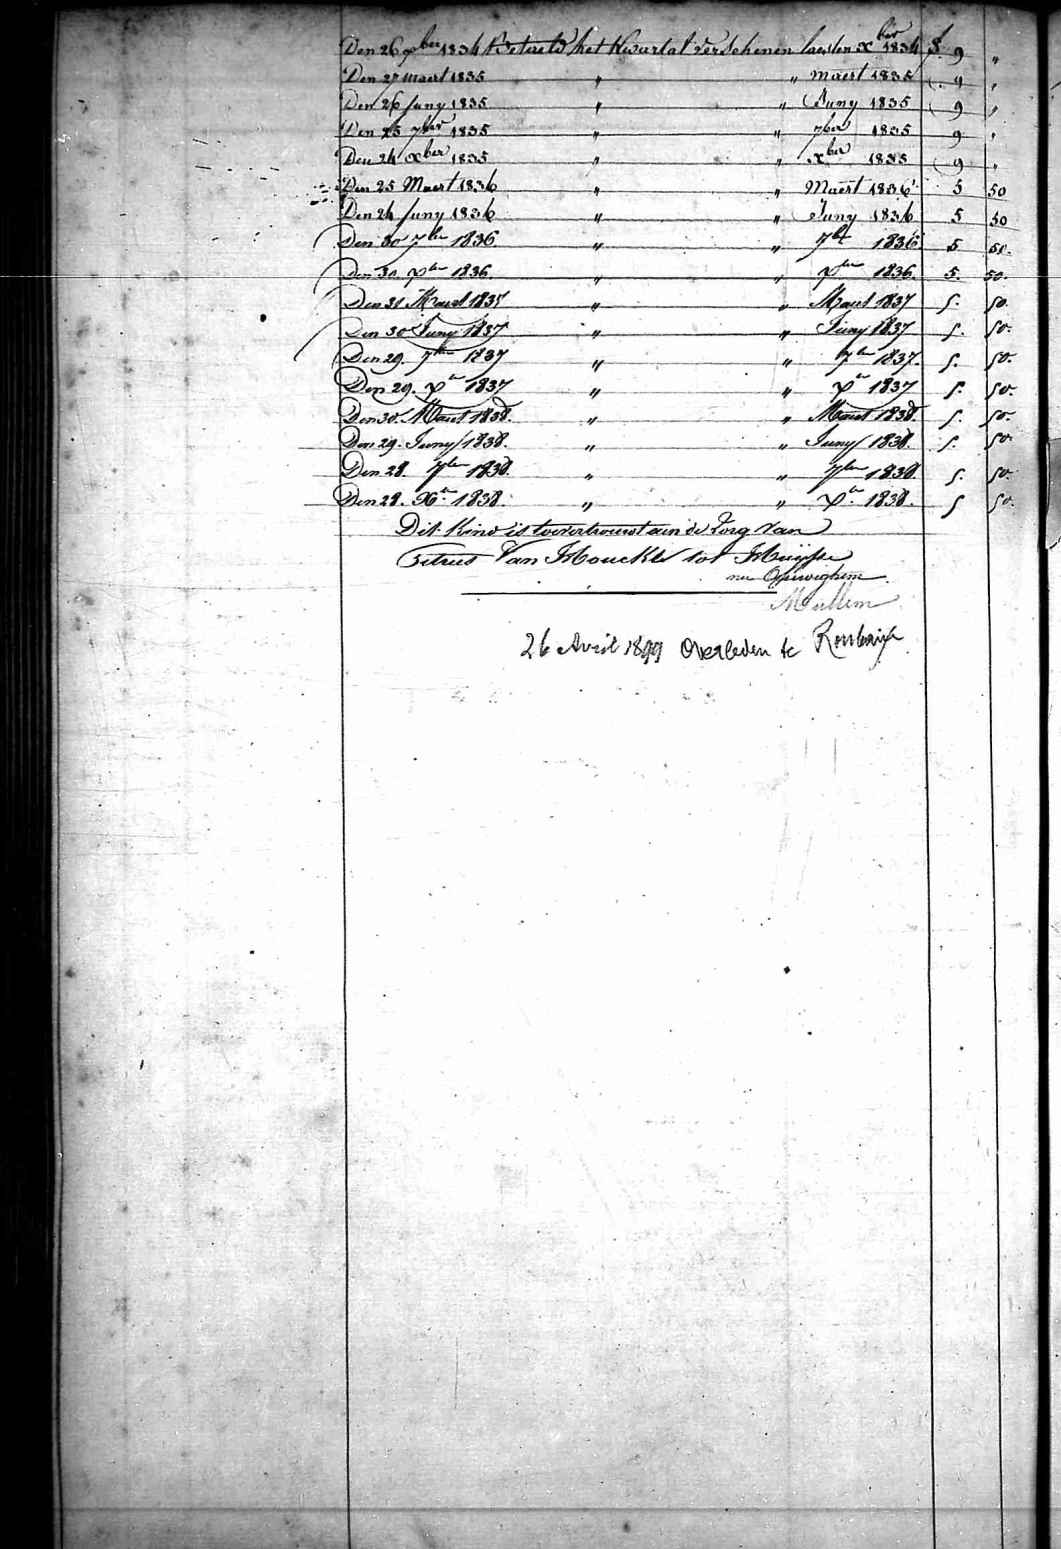 Den 26 xber 1834 Betaeld het Kwartal verschenen laesten xber 1834 f. 9 "
Den 27 maert 1835 " " maert 1835 9 "
Den 26 Juny 1835 " " Juny 1835 9 "
Den 25 7ber 1835 " " 7ber 1835 9 "
Den 24 xber 1835 " " xber 1835 9 "
Den 25 Maert 1836 " " Maert 1836 5 50
Den 24 Juny 1836 " " Juny 1836 5 50
Den 30 7ber 1836 " " 7br 1836 5 50.
Den 30. xber 1836. " " xber 1836. 5. 50.
Den 31 Maert 1837 " " Maert 1837 5. 50.
Den 30 Juny 1837 " " Juny 1837 5. 50.
Den 29. 7ber 1837 " " 7ber 1837. 5. 50.
Den 29. xer 1837 " " xer 1837 5. 50.
Den 30. Maert 1838. " " Maert 1838. 5. 50.
Den 29. Juny 1838. " " Juny 1838. 5. 50.
Den 28. 7ber 1838. " " 7ber 1838. 5. 50.
Den 28. Xer 1838. " " xer 1838. 5 50.
Dit Kind is toevertrouwt aen de Zorg Van
Petrus Van Houcke tot Huysse
nu
Mullem
26 Avril 1899 Overleden te Roubaix